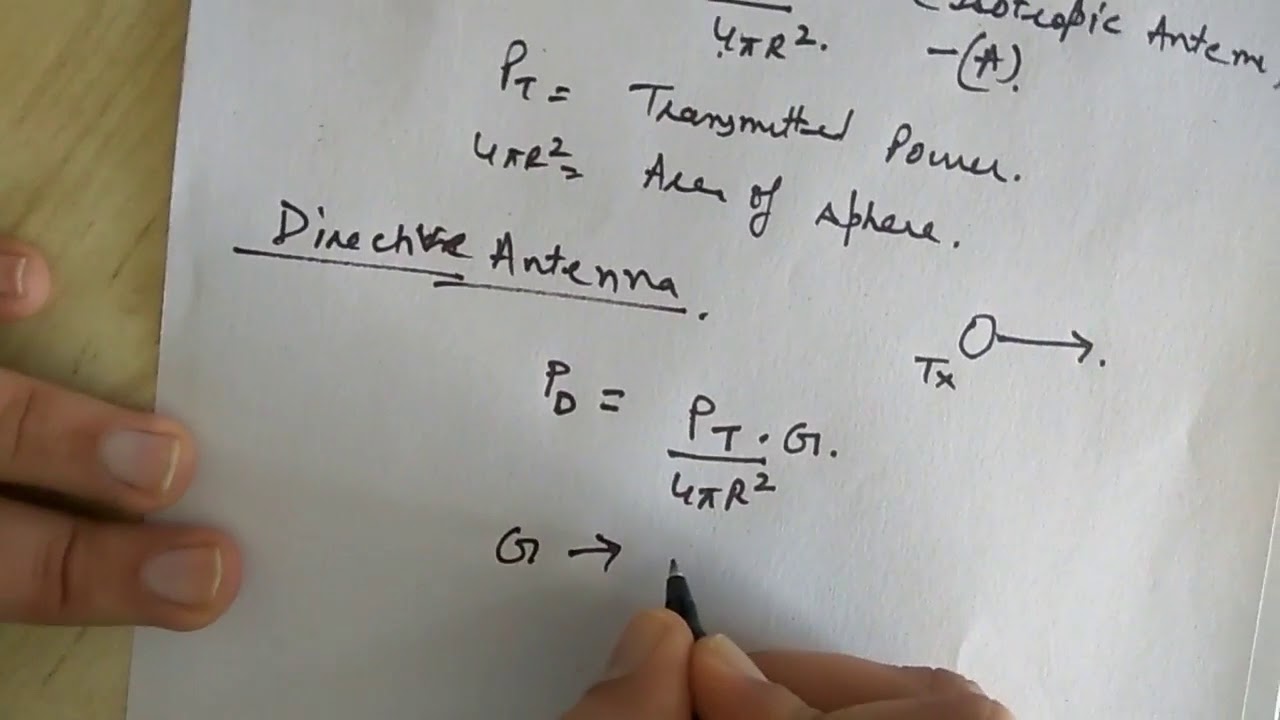 Isotropic Antenn
4πR². -(A).
P_T = Transmitted Power.
4πR² = Area of sphere.
Directive Antenna.
Tx
P_D = P_T . G.
4πR²
G →